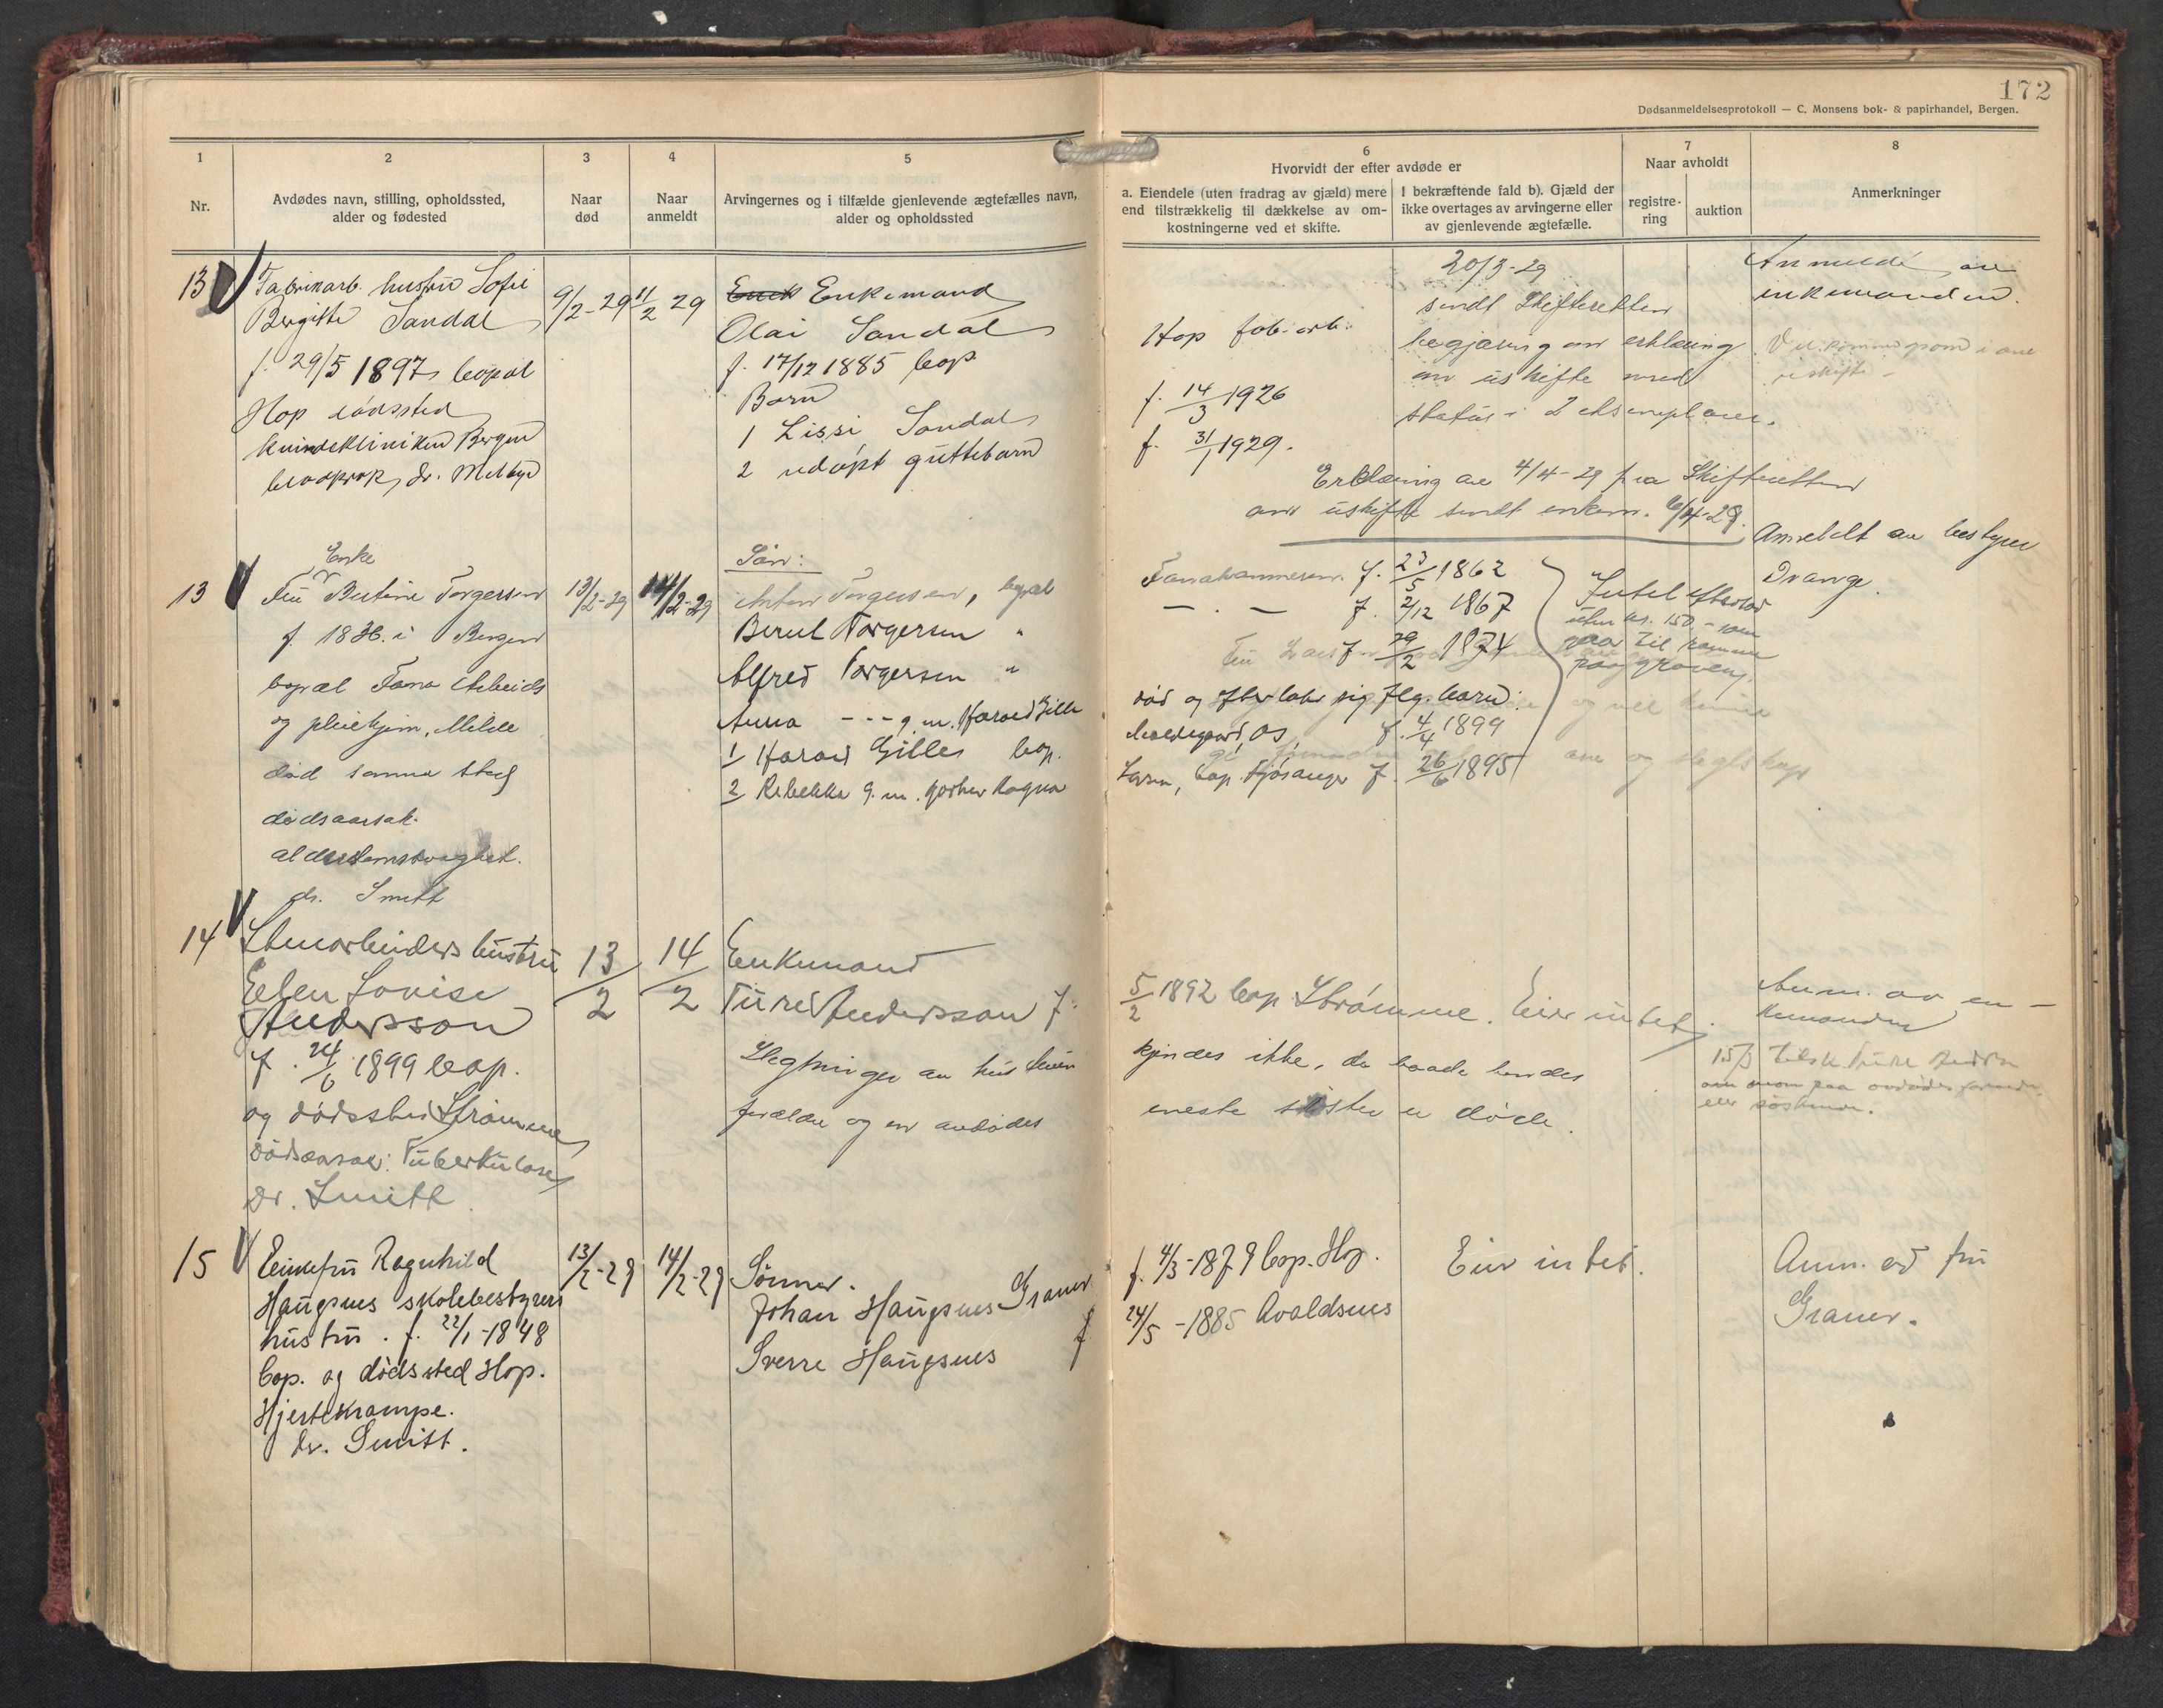 172
Dødsanmeldelsesprotokoll — C. Monsens bok- & papirhandel, Bergen.
1
Nr.
2
Avdødes navn, stilling, opholdssted,
alder og fødested
3
Naar
død
4
Naar
anmeldt
5
Arvingernes og i tilfælde gjenlevende ægtefælles navn,
alder og opholdssted
6
Hvorvidt der efter avdøde er
a. Eiendele (uten fradrag av gjæld) mere
end tilstrækkelig til dækkelse av om-
kostningerne ved et skifte.
I bekræftende fald b). Gjæld der
ikke overtages av arvingerne eller
av gjenlevende ægtefælle.
7
Naar avholdt
registre-
ring
auktion
8
Anmerkninger
13
Fabrikarb. hustru Sofie
Bergitte Sandal
f. 29/5 1897 bopæl
Hop dødssted
kvindeklinikken Bergen
blodprop, dr. Meltzer
9/2-29
11/2 29
Enk Enkemand
Olai Sandal
f. 17/12 1885 bop
Barn
1 Lissi Sandal
2 udøpt guttebarn
Hop fab. arb.
f. 14/3 1926
f. 31/1 1929.
20/3-29
sendt Skifteretten
begjæring om erklæring
om uskifte med
status i 2 eksemplarer.
Erklæring av 4/4-29 fra Skifteretten
om uskifte sendt enkem. 6/4-29.
Anmeldt av
enkemanden.
13
Enke
Fru Bertine Torgersen
f. 1836 i Bergen
bopæl Fana Arbeids
og pleiehjem, Milde
død samme sted
dødsaarsak
alderdomssvaghet.
dr. Smitt
13/2-29
14/2-29
Søn:
Anton Torgersen, bopæl
Bernt Torgersen "
Alfred Torgersen "
Anna - - - g. m. Harald Gille
1 Harald Gille bop.
2 Rebekka g. m.
f. 23/5 1862
— . — f. 2/12 1867
f. 29/2 1874
død og efterlater sig flg. barn:
Os f. 4/4 1899
Larsen, bop. Fjøsanger f. 26/6 1895
Intet efterlod
uten kr. 150.- som
gaar til
Anmeldt av bestyrer
Drange.
14
Stenarbeiders hustru
Ellen Lovise
Andersson
f. 24/6 1899 bop.
og dødssted Strømme
Dødsaarsak: Tuberkulose
Dr. Smitt
13/2
14/2
Enkemand
Ture Andersson f.
Slegtninger av hustruen
forældre og en avdødes
5/2 1892 bop. Strømme. Eier intet
kjendes ikke, da baade hendes
eneste søster er døde.
Anm. av en-
kemanden
15/3
eller søskende.
15
Enkefru Ragnhild
Haugsnes skolebestyrers
hustru. f. 22/1-1848
bop. og dødssted Hop.
Hjertekrampe.
dr. Smitt.
13/2-29
14/2-29
Sønner.
Johan Haugsnes Graner
Sverre Haugsnes f
f. 4/3-1879 bop. Hop.
24/5-1885 Avaldsnes
Eier intet.
Anm. av fru
Graner.